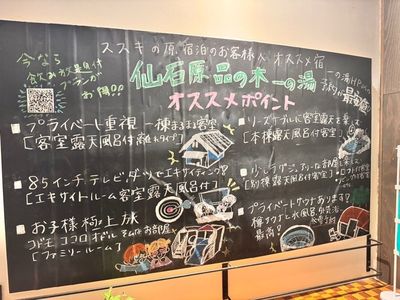 ススキの原 宿泊のお客様へ オススメ宿
仙石原 品の木 一の湯
オススメポイント
今なら
飲み放題付
プランが
お得!!
一の湯HPからの
予約が最安値
プライベート重視 一棟まるまる客室
[客室露天風呂付離れタイプ]
85インチテレビダ!サイキ エキサイティング!
[エキサイトルーム客室露天風呂付]
お子様 極上旅
コドモココロオドル そんなお部屋
[ファミリールーム]
リーズナブルに客室露天を楽しみ
[本棟露天風呂付客室]
少しラグジュアリーな部屋
[別棟露天風呂付客室]
プライベートサウナあります?
樽サウナと水風呂、外気浴
最高!